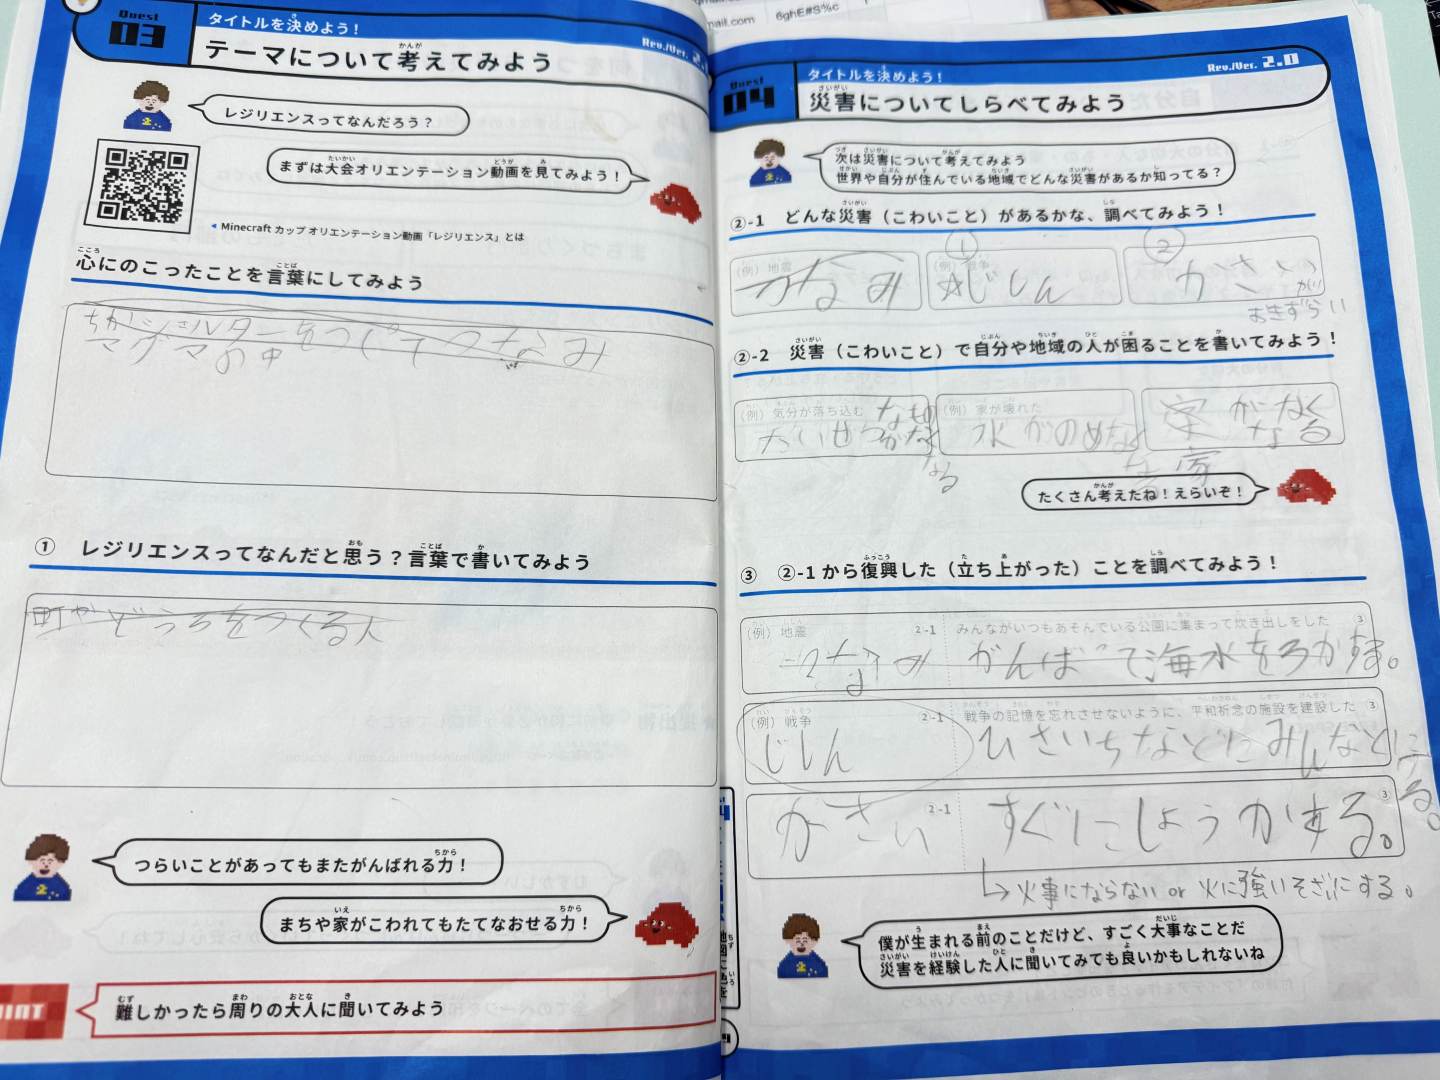 Quest 03
タイトルを決めよう！
テーマについて考えてみよう
Rev./Ver. 2.
レジリエンスってなんだろう？
まずは大会オリエンテーション動画を見てみよう！
Minecraft カップ オリエンテーション動画「レジリエンス」とは
心にのこったことを言葉にしてみよう
マグマの中
① レジリエンスってなんだと思う？言葉で書いてみよう
町やどうろをつくる人
つらいことがあってもまたがんばれる力！
まちや家がこわれてもたてなおせる力！
HINT
難しかったら周りの大人に聞いてみよう
mail.com
6ghE#S%c
Quest 04
タイトルを決めよう！
災害についてしらべてみよう
Rev./Ver. 2.0
次は災害について考えてみよう
世界や自分が住んでいる地域でどんな災害があるか知ってる？
②-1 どんな災害（こわいこと）があるかな、調べてみよう！
① ②
（例）地震
つなみ
（例）戦争
じしん
かさい
おきずらい
②-2 災害（こわいこと）で自分や地域の人が困ることを書いてみよう！
（例）気分が落ち込む
たいせつなものがなくなる
（例）家が壊れた
水がのめなくなる
家がなくなる
家
たくさん考えたね！えらいぞ！
③ ②-1 から復興した（立ち上がった）ことを調べてみよう！
（例）地震 ②-1 みんながいつもあそんでいる公園に集まって炊き出しをした ③
つなみ がんばって海水をろかする。
（例）戦争 ②-1 戦争の記憶を忘れさせないように、平和祈念の施設を建設した ③
じしん ひさいちなどにみんなとにげる。
かさい ②-1 すぐにしょうかする。 ③
→火事にならない or 火に強いそざいにする。
僕が生まれる前のことだけど、すごく大事なことだ
災害を経験した人に聞いてみても良いかもしれないね